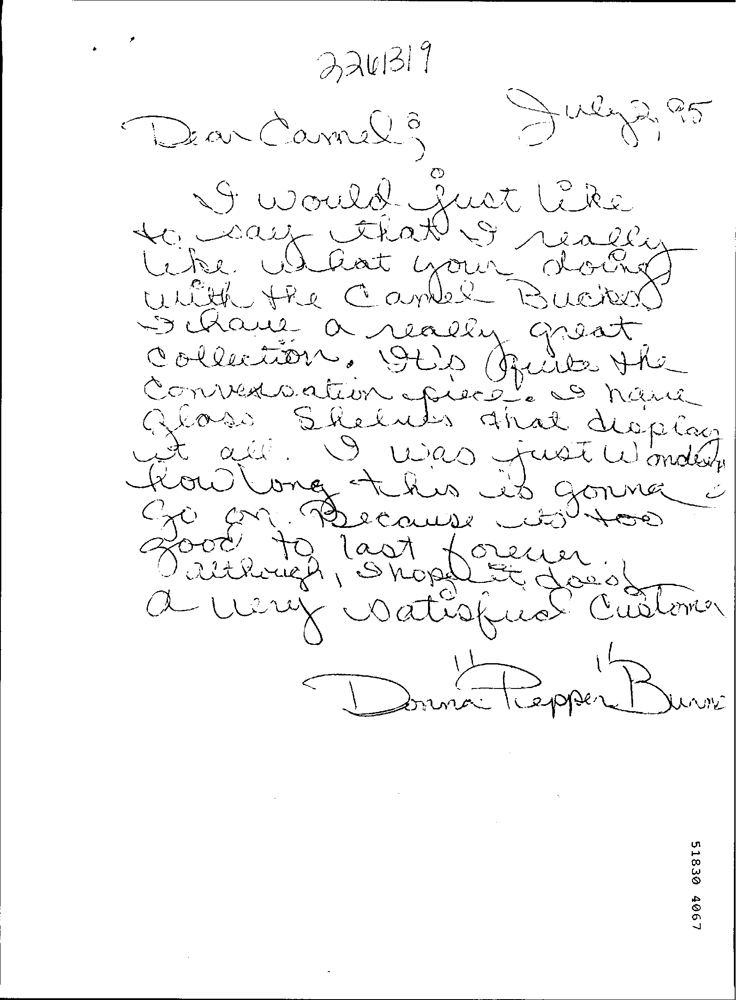 2261319
July 2, 95
Dear Camel;
I would just like
to say that I really
like what your doing
with the Camel Bucks
I have a really great
Collection. It's quite the
Conversation piece. I have
Glass Shelves that display
it all. I was just Wondering
how long this is gonna
Go on. Because its too
good to last forever.
Although, I hope it does!
a very satisfied Customer
Donna "Pepper"
51830 4067